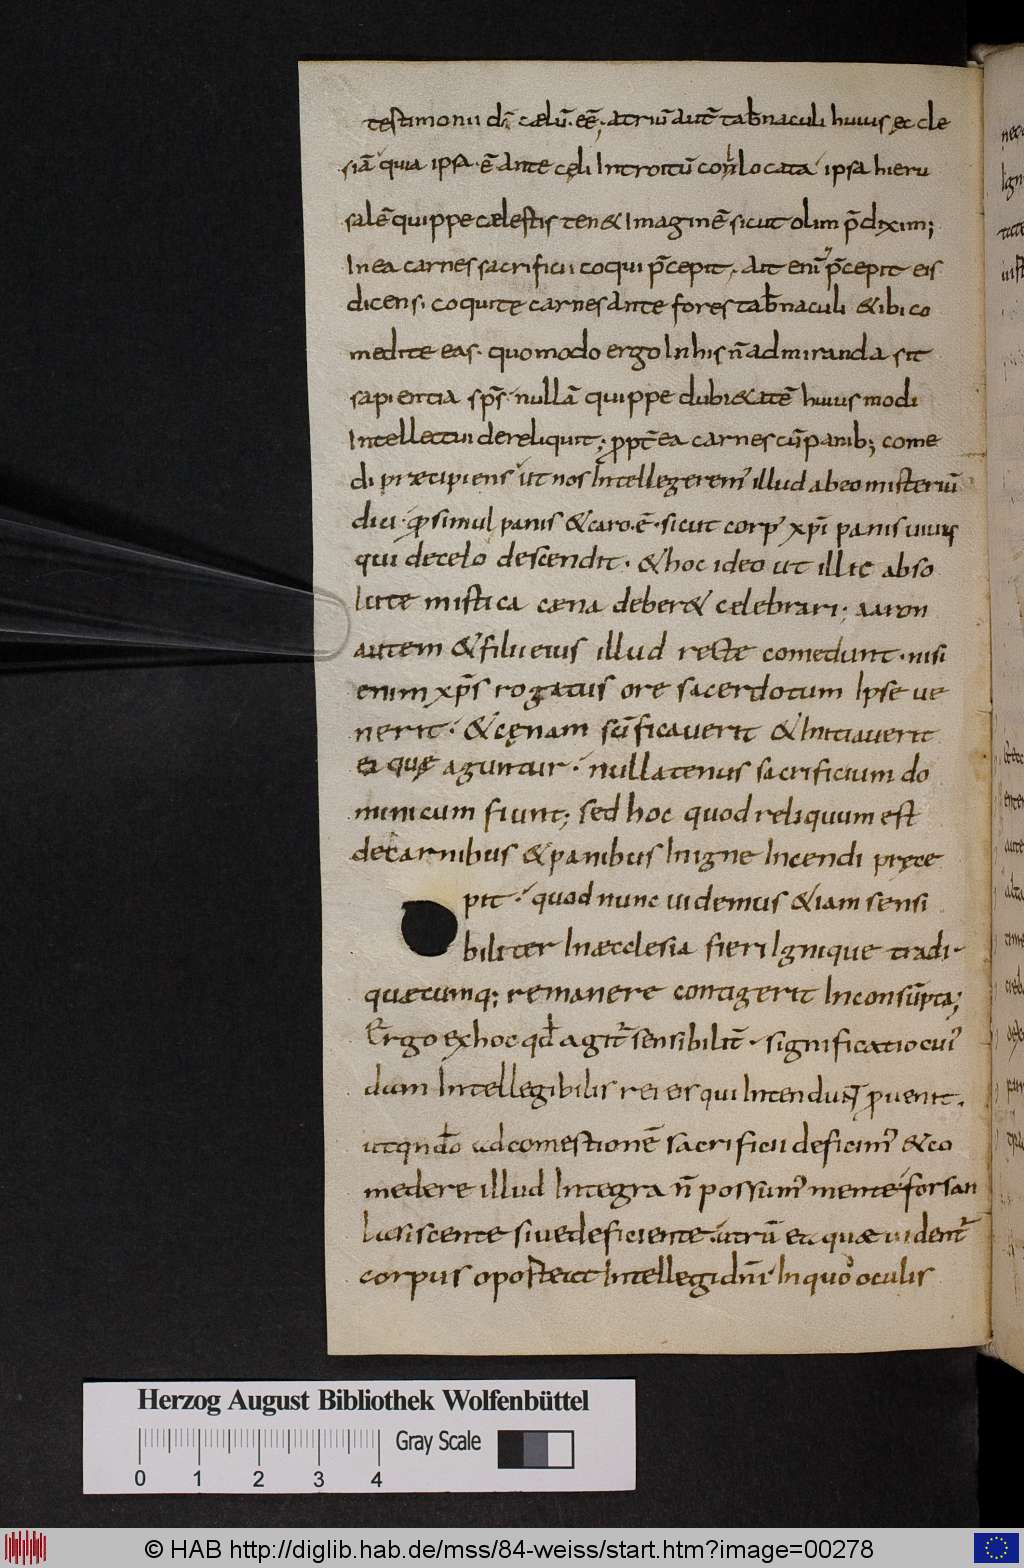 testimonii dī cælū· eē; atriū autē tab̄naculi huius eccle
siā quia ipsa· ē ante cęli Introitū conlocata ipsa hieru
salē quippe cælestis ten& Imaginē sicut olim p̄diximus;
In ea carnes sacrificii coqui p̄cepit, ait enī p̄cepit eis
dicens· coquite carnes ante fores tab̄naculi &ibi co
medite eas· quomodo ergo In his n̄ admiranda sit
sapientia sp̄s· nullā quippe dubi&atē huius modi
Intellectui dereliquit; ꝓpt̄ ea carnes cū panib; come
di præcipiens ut nos Intellegerem' illud ab eo misteriū
dici· simul panis &caro· ē· sicut corp' xp̄i panis uiuus
qui decęlo descendit· &hoc ideo ut illic abso
lute mistica cæna deber& celebrari; aaron
autem &filii eius illud recte comedunt· nisi
enim xp̄s rogatus ore sacerdotum Ipse ue
nerit· &cęnam sc̄ificauerit &Initiauerit
ea quę aguntur· nullatenus sacrificium do
minicum fiunt; sed hoc quod reliquum est
de carnibus &panibus In igne Incendi pręce
pit· quod nunc uidemus &iam sensi
biliter In æcclesia fieri Ignique tradi·
quæcumq; remanere contigerit Inconsūpta;
Ergo ex hoc qd̄ agit̄ sensibilit̄· significatio cui'
dam Intellegibilis rei eis qui Intendunt ꝓuenit·
ut qn̄do ad comestionē sacrificii deficim' &co
medere illud Integra n̄ possum' mente· forsan
luciscente siue deficiente· utrū ea quæ uident̄
corpus oporteat Intellegi dn̄i· In quo oculis
Herzog August Bibliothek Wolfenbüttel
Gray Scale
0 1 2 3 4
© HAB http://diglib.hab.de/mss/84-weiss/start.htm?image=00278